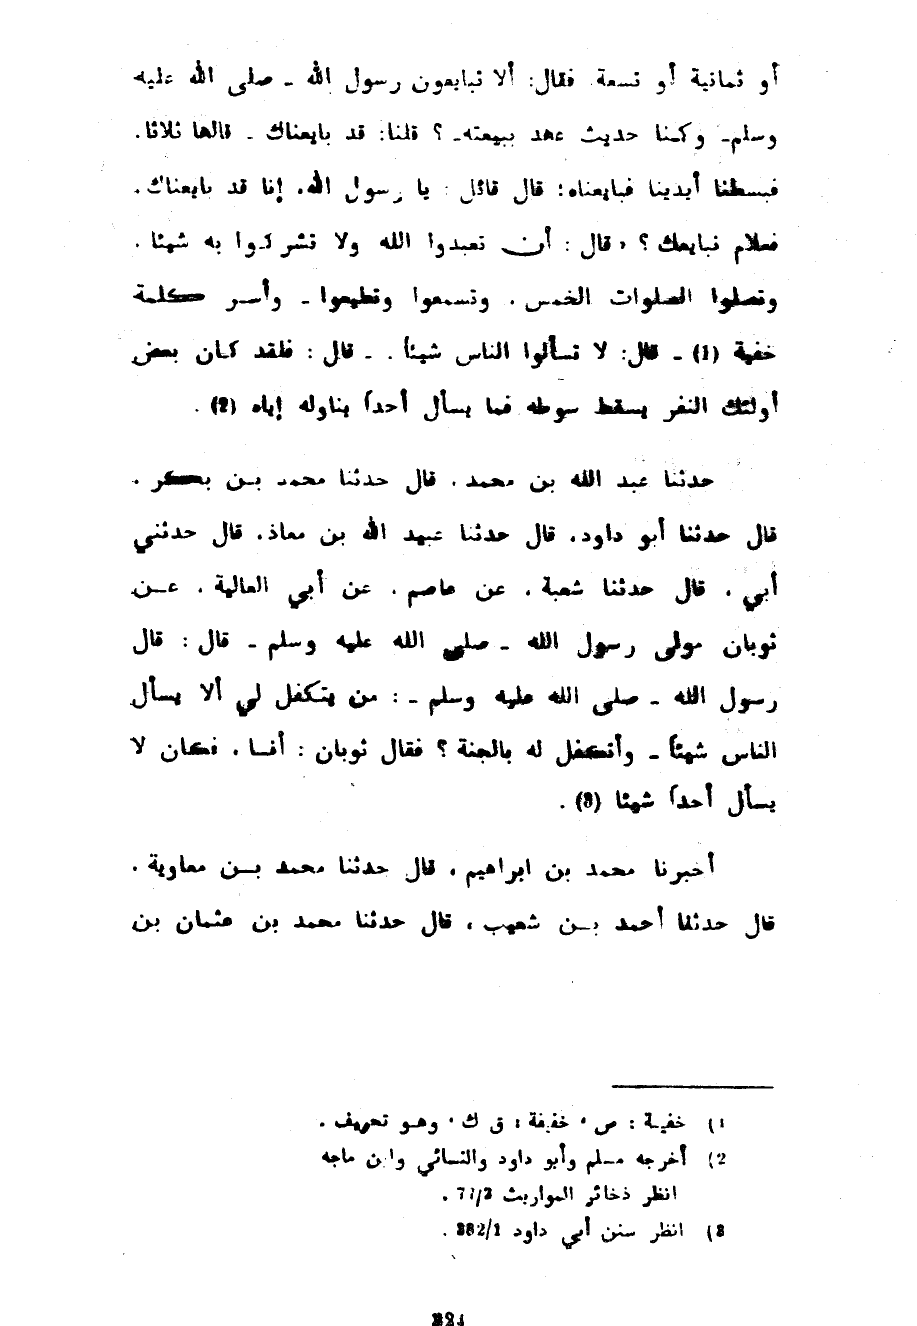 أو ثمانية أو تسعة. فقال: ألا تبايعون رسول الله ـ صلى الله عليه
وسلم ـ وكنا حديث عهد ببيعته ـ ؟ قلنا: قد بايعناك ـ قالها ثلاثا.
فبسطنا أيدينا فبايعناه؛ قال قائل : يا رسول الله، إنا قد بايعناك.
فعلام نبايعك ؟ ، قال : أن تعبدوا الله ولا تشركوا به شيئا .
وتصلوا الصلوات الخمس . وتسمعوا وتطيعوا ـ وأسر كلمة
خفية (1) ـ قال: لا تسألوا الناس شيئاً . ـ قال : فلقد كان بعض
أولئك النفر يسقط سوطه فما يسأل أحداً يناوله إياه (2) .
حدثنا عبد الله بن محمد ، قال حدثنا محمد بن بكر .
قال حدثنا أبو داود، قال حدثنا عبيد الله بن معاذ، قال حدثني
أبي ، قال حدثنا شعبة ، عن عاصم ، عن أبي العالية ، عن
ثوبان مولى رسول الله ـ صلى الله عليه وسلم ـ قال : قال
رسول الله ـ صلى الله عليه وسلم ـ : من يتكفل لي ألا يسأل
الناس شيئاً ـ وأتكفل له بالجنة ؟ فقال ثوبان : أنا ، فكان لا
يسأل أحداً شيئا (3) .
أخبرنا محمد بن ابراهيم ، قال حدثنا محمد بن معاوية .
قال حدثنا أحمد بن شعيب ، قال حدثنا محمد بن عثمان بن
1) خفية : ص ، خفيفة : ق ك ، وهو تحريف .
2) أخرجه مسلم وأبو داود والنسائي وابن ماجه
انظر ذخائر المواريث
3) انظر سنن أبي داود 382/1 .